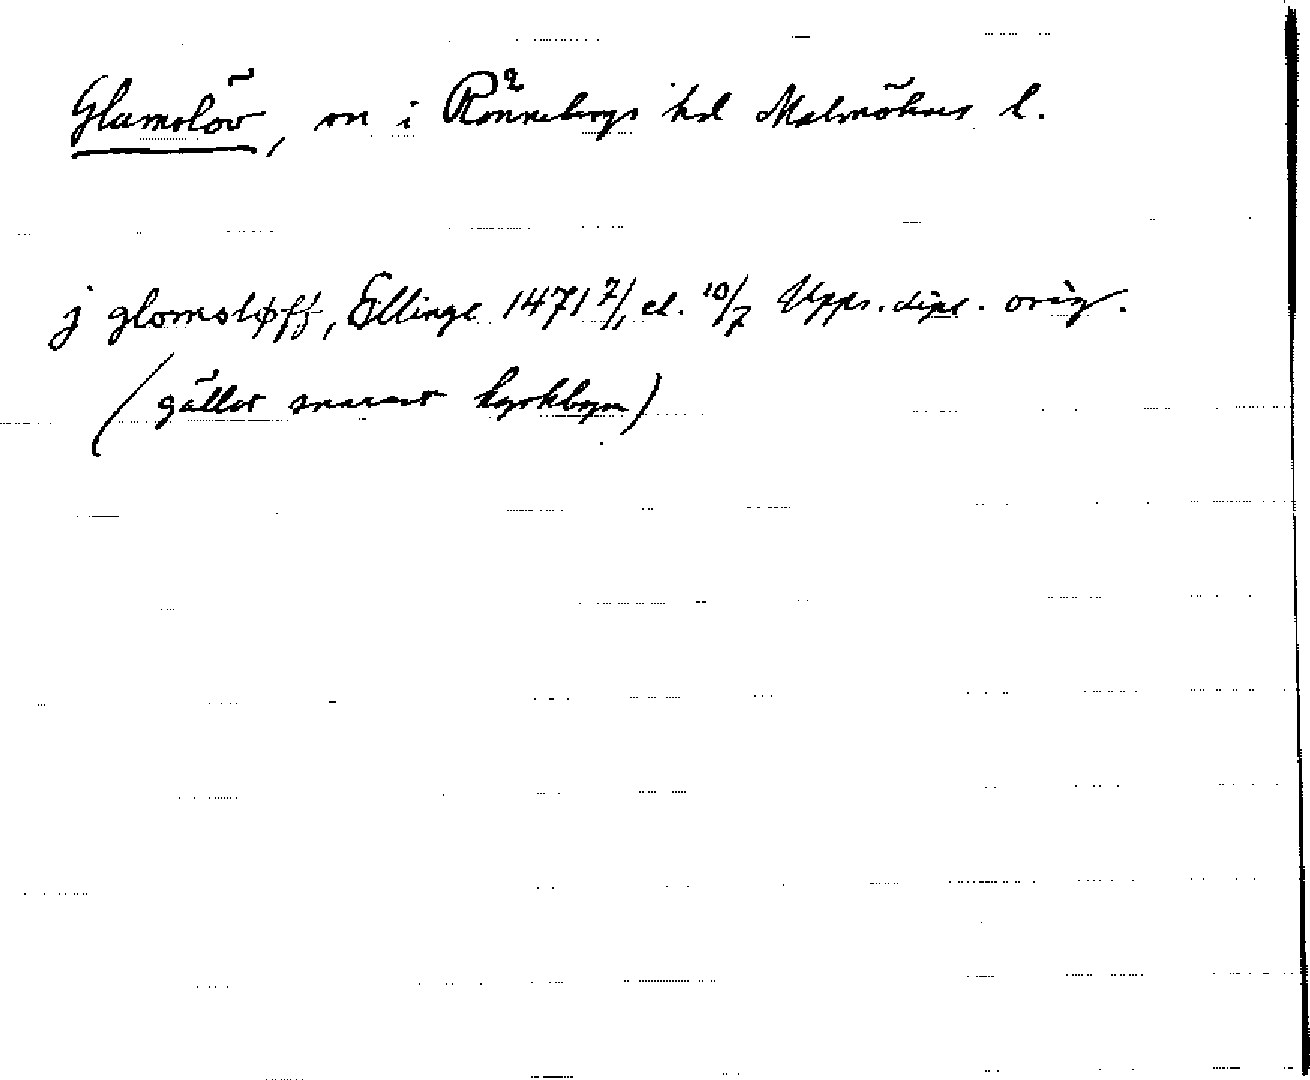 Glumslöv, sn i Rönnebergs hd Malmöhus l.
j glomsløff, Ellinge 1471 2/1 el. 10/7 Upps. dipl. orig.
(gäller snarast kyrkbyn)